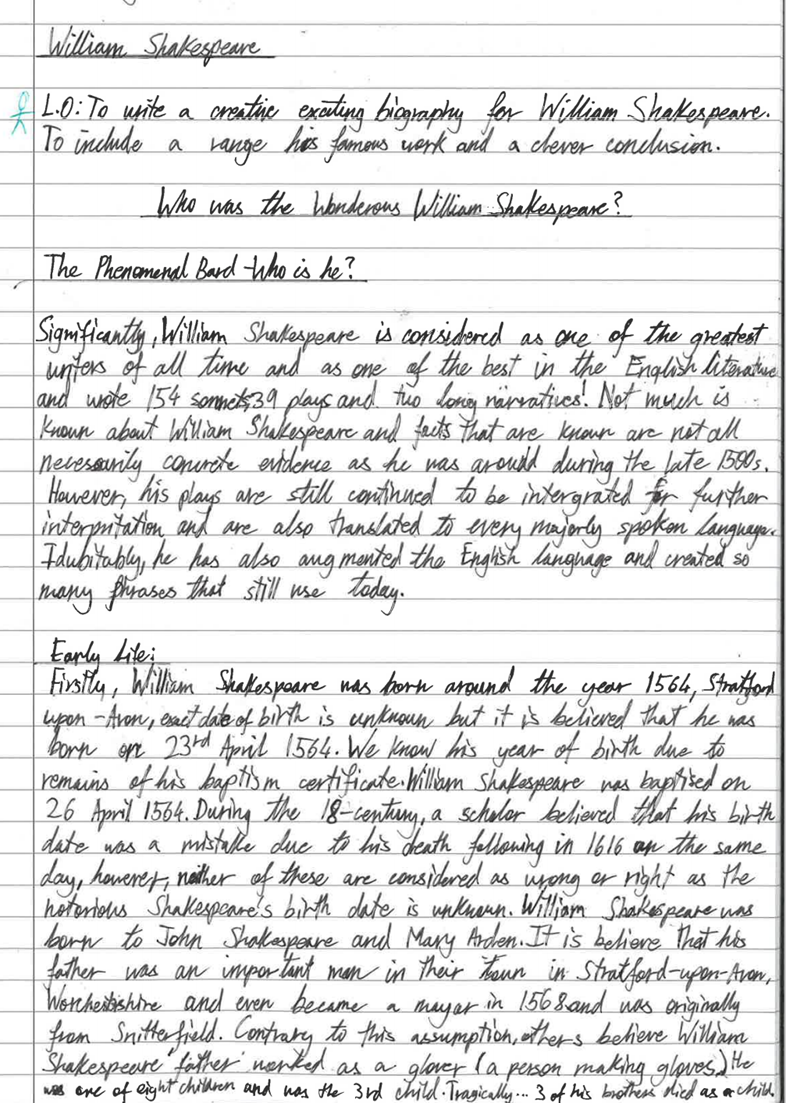 William Shakespeare
L.O: To write a creative exciting biography for William Shakespeare.
To include a range his famous work and a clever conclusion.
Who was the Wonderous William Shakespeare?
The Phenomenal Bard - Who is he?
Significantly, William Shakespeare is considered as one of the greatest
writers of all time and as one of the best in the English literature
and wrote 154 sonnets, 39 plays and two long narratives! Not much is
known about William Shakespeare and facts that are known are not all
necessarily concrete evidence as he was around during the late 1500s.
However, his plays are still continued to be intergrated for further
interpritation and are also translated to every majorly spoken language.
Idubitably, he has also augmented the English language and created so
many phrases that still use today.
Early Life:
Firstly, William Shakespeare was born around the year 1564, Stratford
upon-Avon, exact date of birth is unknown but it is believed that he was
born on 23rd April 1564. We know his year of birth due to
remains of his baptism certificate. William Shakespeare was baptised on
26 April 1564. During the 18-century, a scholar believed that his birth
date was a mistake due to his death following in 1616 on the same
day, however, neither of these are considered as wrong or right as the
notorious Shakespeare's birth date is unknown. William Shakespeare was
born to John Shakespeare and Mary Arden. It is believe that his
father was an important man in their town in Stratford-upon-Avon,
and even became a mayor in 1568 and was originally
from Snitterfield. Contrary to this assumption, others believe William
Shakespeare' father worked as a glover (a person making gloves.) He
was one of eight children and was the 3rd child. Tragically... 3 of his brothers died as a child.